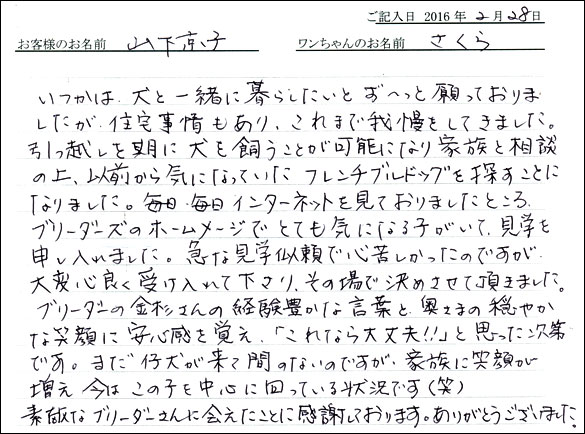 ご記入日 2016 年 2 月 28 日
お客様のお名前 山下京子 ワンちゃんのお名前 さくら
いつかは、犬と一緒に暮らしたいと ず〜っと 願っておりま
したが、住宅事情もあり、これまで我慢をしてきました。
引っ越しを期に 犬を飼うことが可能になり 家族と相談
の上、以前から気になっていた フレンチブルドッグを探すことに
なりました。毎日 毎日 インターネットを見ておりましたところ、
ブリーダーズのホームメージで とても気になる子がいて、見学を
申し入れました。急な見学似頼で心苦しかったのですが、
大変心良く受け入れて下さり、その場で決めさせて頂きました。
ブリーダーの 金杉さんの 経験豊かな言葉と、奥さまの 穏やか
な笑顔に 安心感を覚え、「これなら大丈夫!!」と 思った次第
です。まだ 仔犬が来て 間のないのですが、家族に笑顔が
増え 今は この子を中心に回っている状況です(笑)
素敵なブリーダーさんに会えたことに 感謝しております。ありがとうございました。